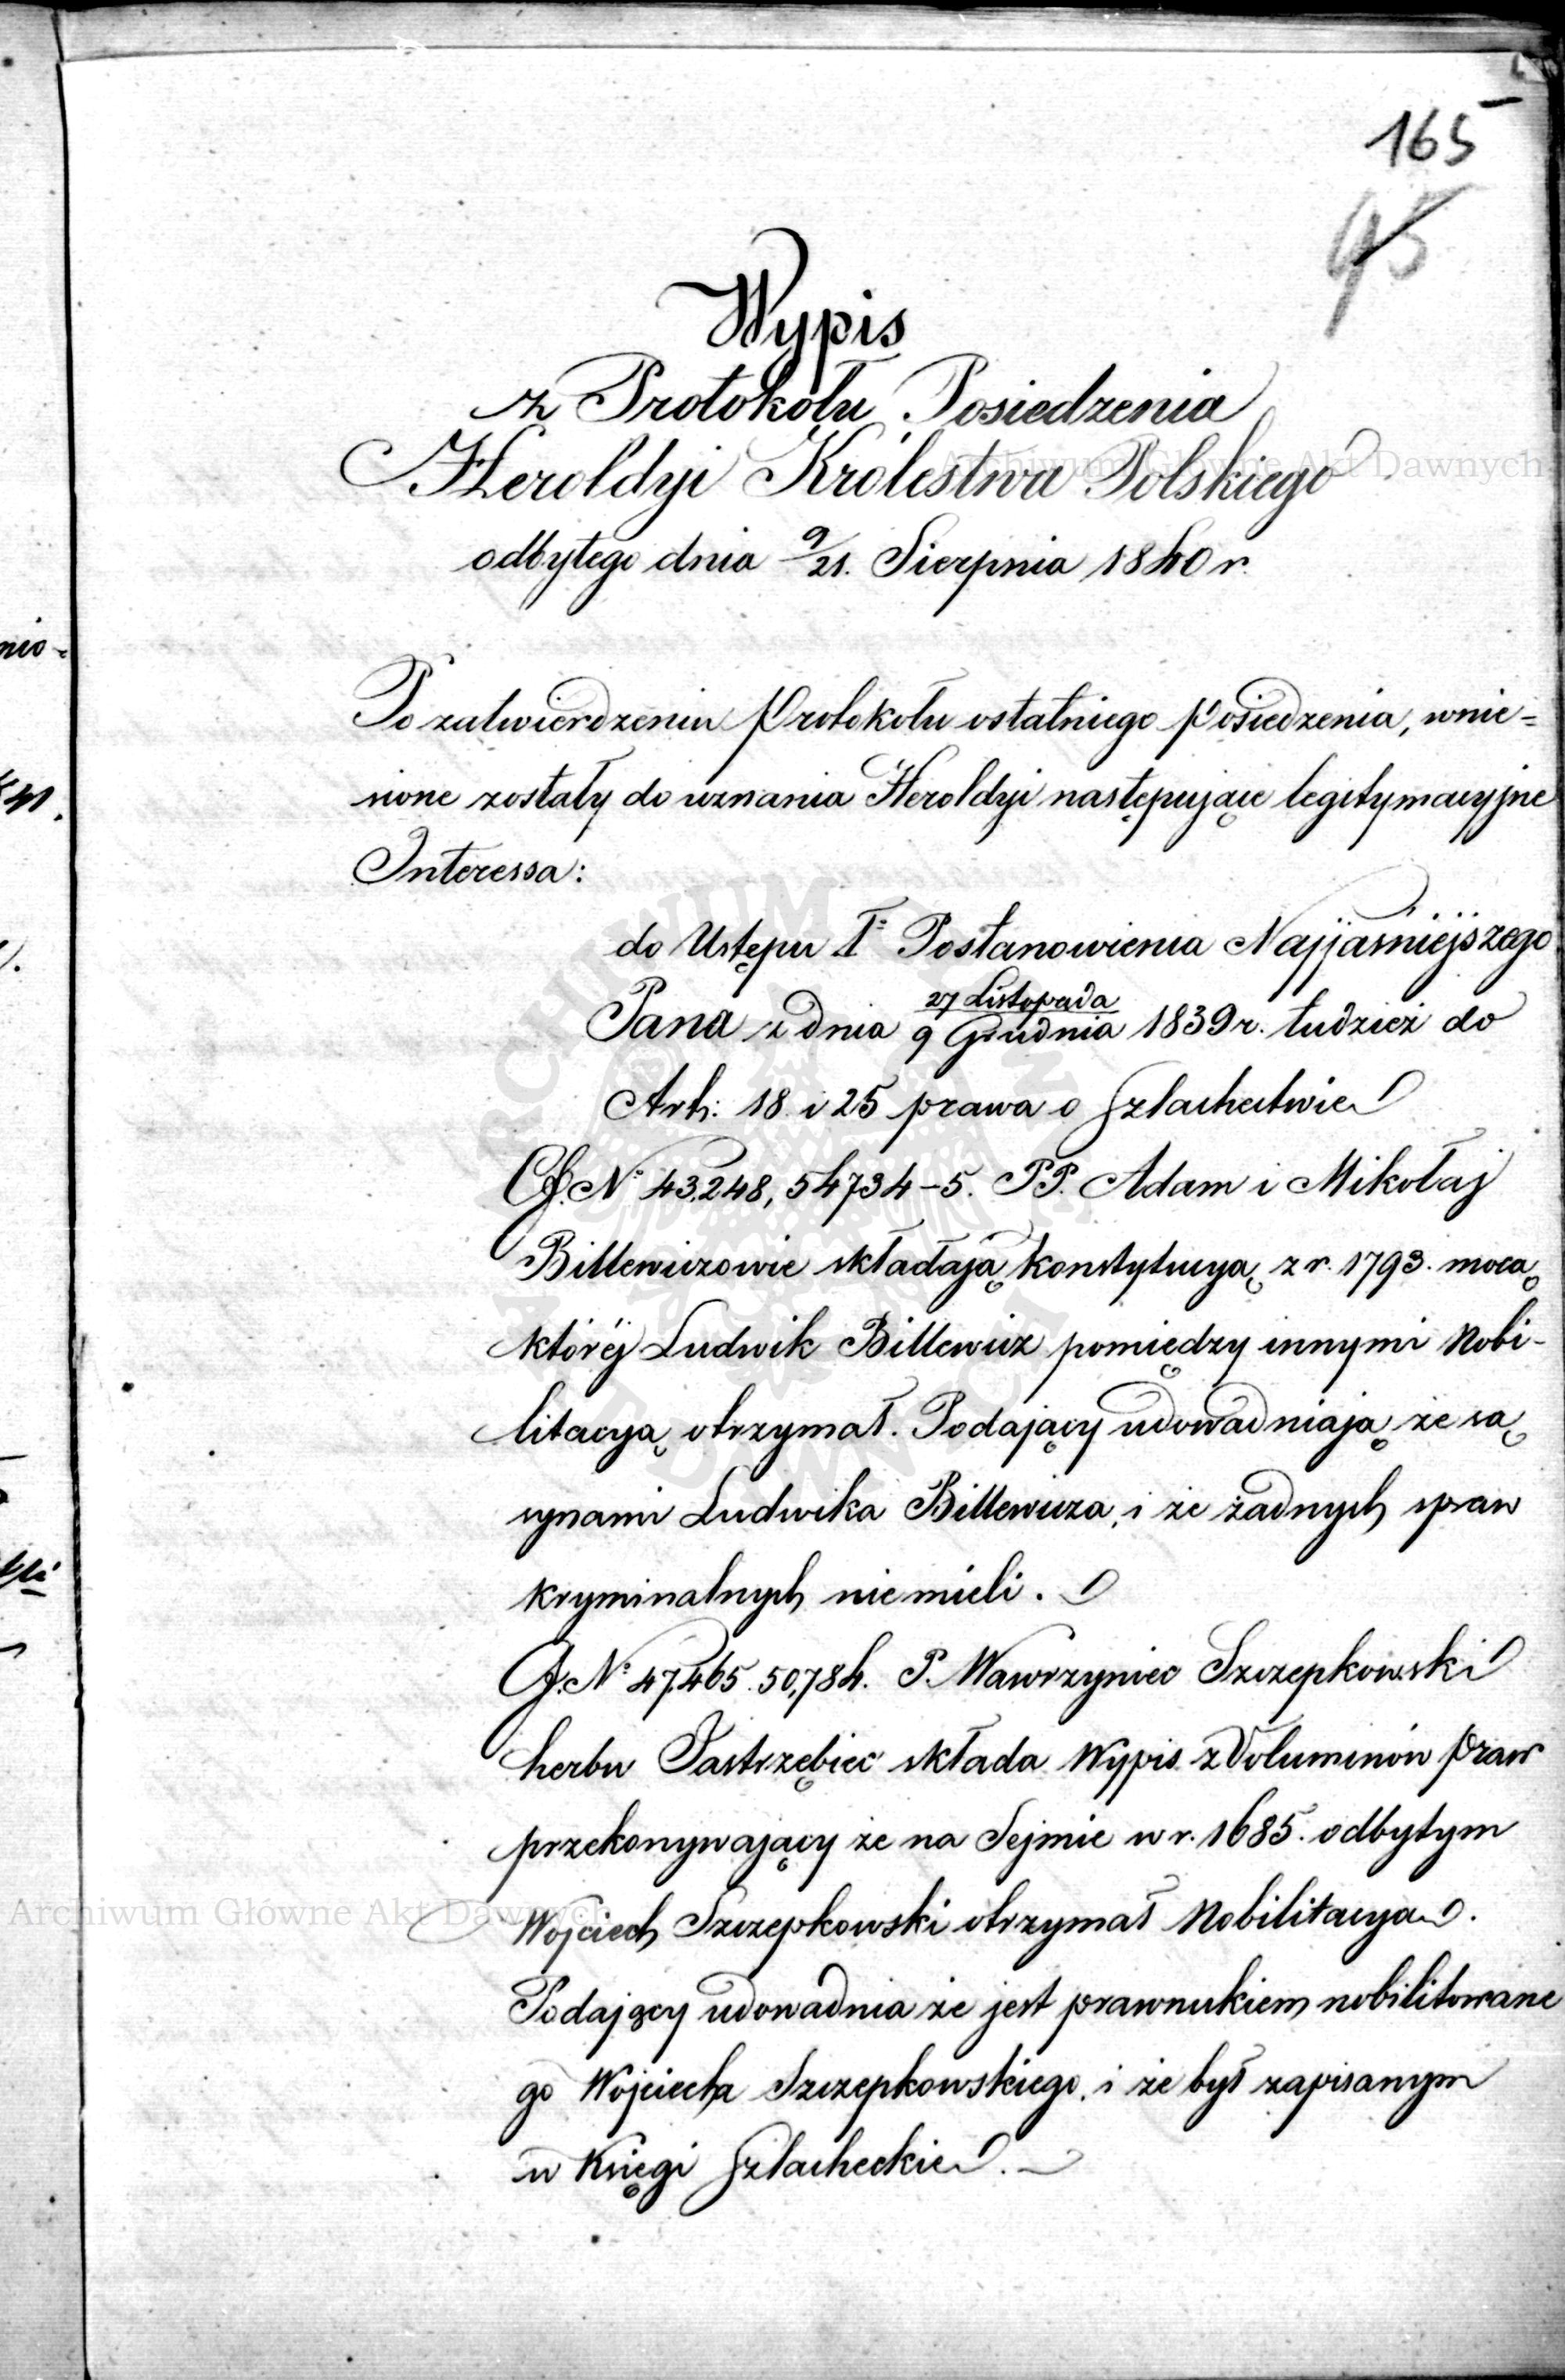 165
95
Wypis
z Protokółu Posiedzenia
Heroldyi Królestwa Polskiego
Archiwum Główne Akt Dawnych
odbytego dnia 9/21. Sierpnia 1840 r.
Po zatwierdzeniu Protokołu ostatniego posiedzenia, wnie=
sione zostały do uznania Heroldyi następujące legitymacyjne
Interessa:
do Ustępu I° Postanowienia Najjaśniejszego
Pana z dnia 27 Listopada / 9 Grudnia 1839 r. tudzież do
Arth: 18 i 25 prawa o Szlachectwie
N° 43,248, 54734-5. PP. Adam i Mikołaj
Billewiczowie składają konstytucyą z r. 1793. mocą
któréj Ludwik Billewicz pomiędzy innymi Nobi-
litacyą otrzymał. Podający udowadniają że są
synami Ludwika Billewicza, i że żadnych spraw
kryminalnych nie mieli.
N° 47,465. 50,784. P. Wawrzyniec Szczepkowski
herbu Jastrzębiec składa Wypis z Voluminów praw
przekonywający że na Sejmie w r. 1685. odbytym
Archiwum Główne Akt Dawnych
Wojciech Szczepkowski otrzymał Nobilitacya.
Podający udowadnia że jest prawnukiem nobilitowane
go Wojciecha Szczepkowskiego, i że był zapisanym
w Księgi Szlacheckie.